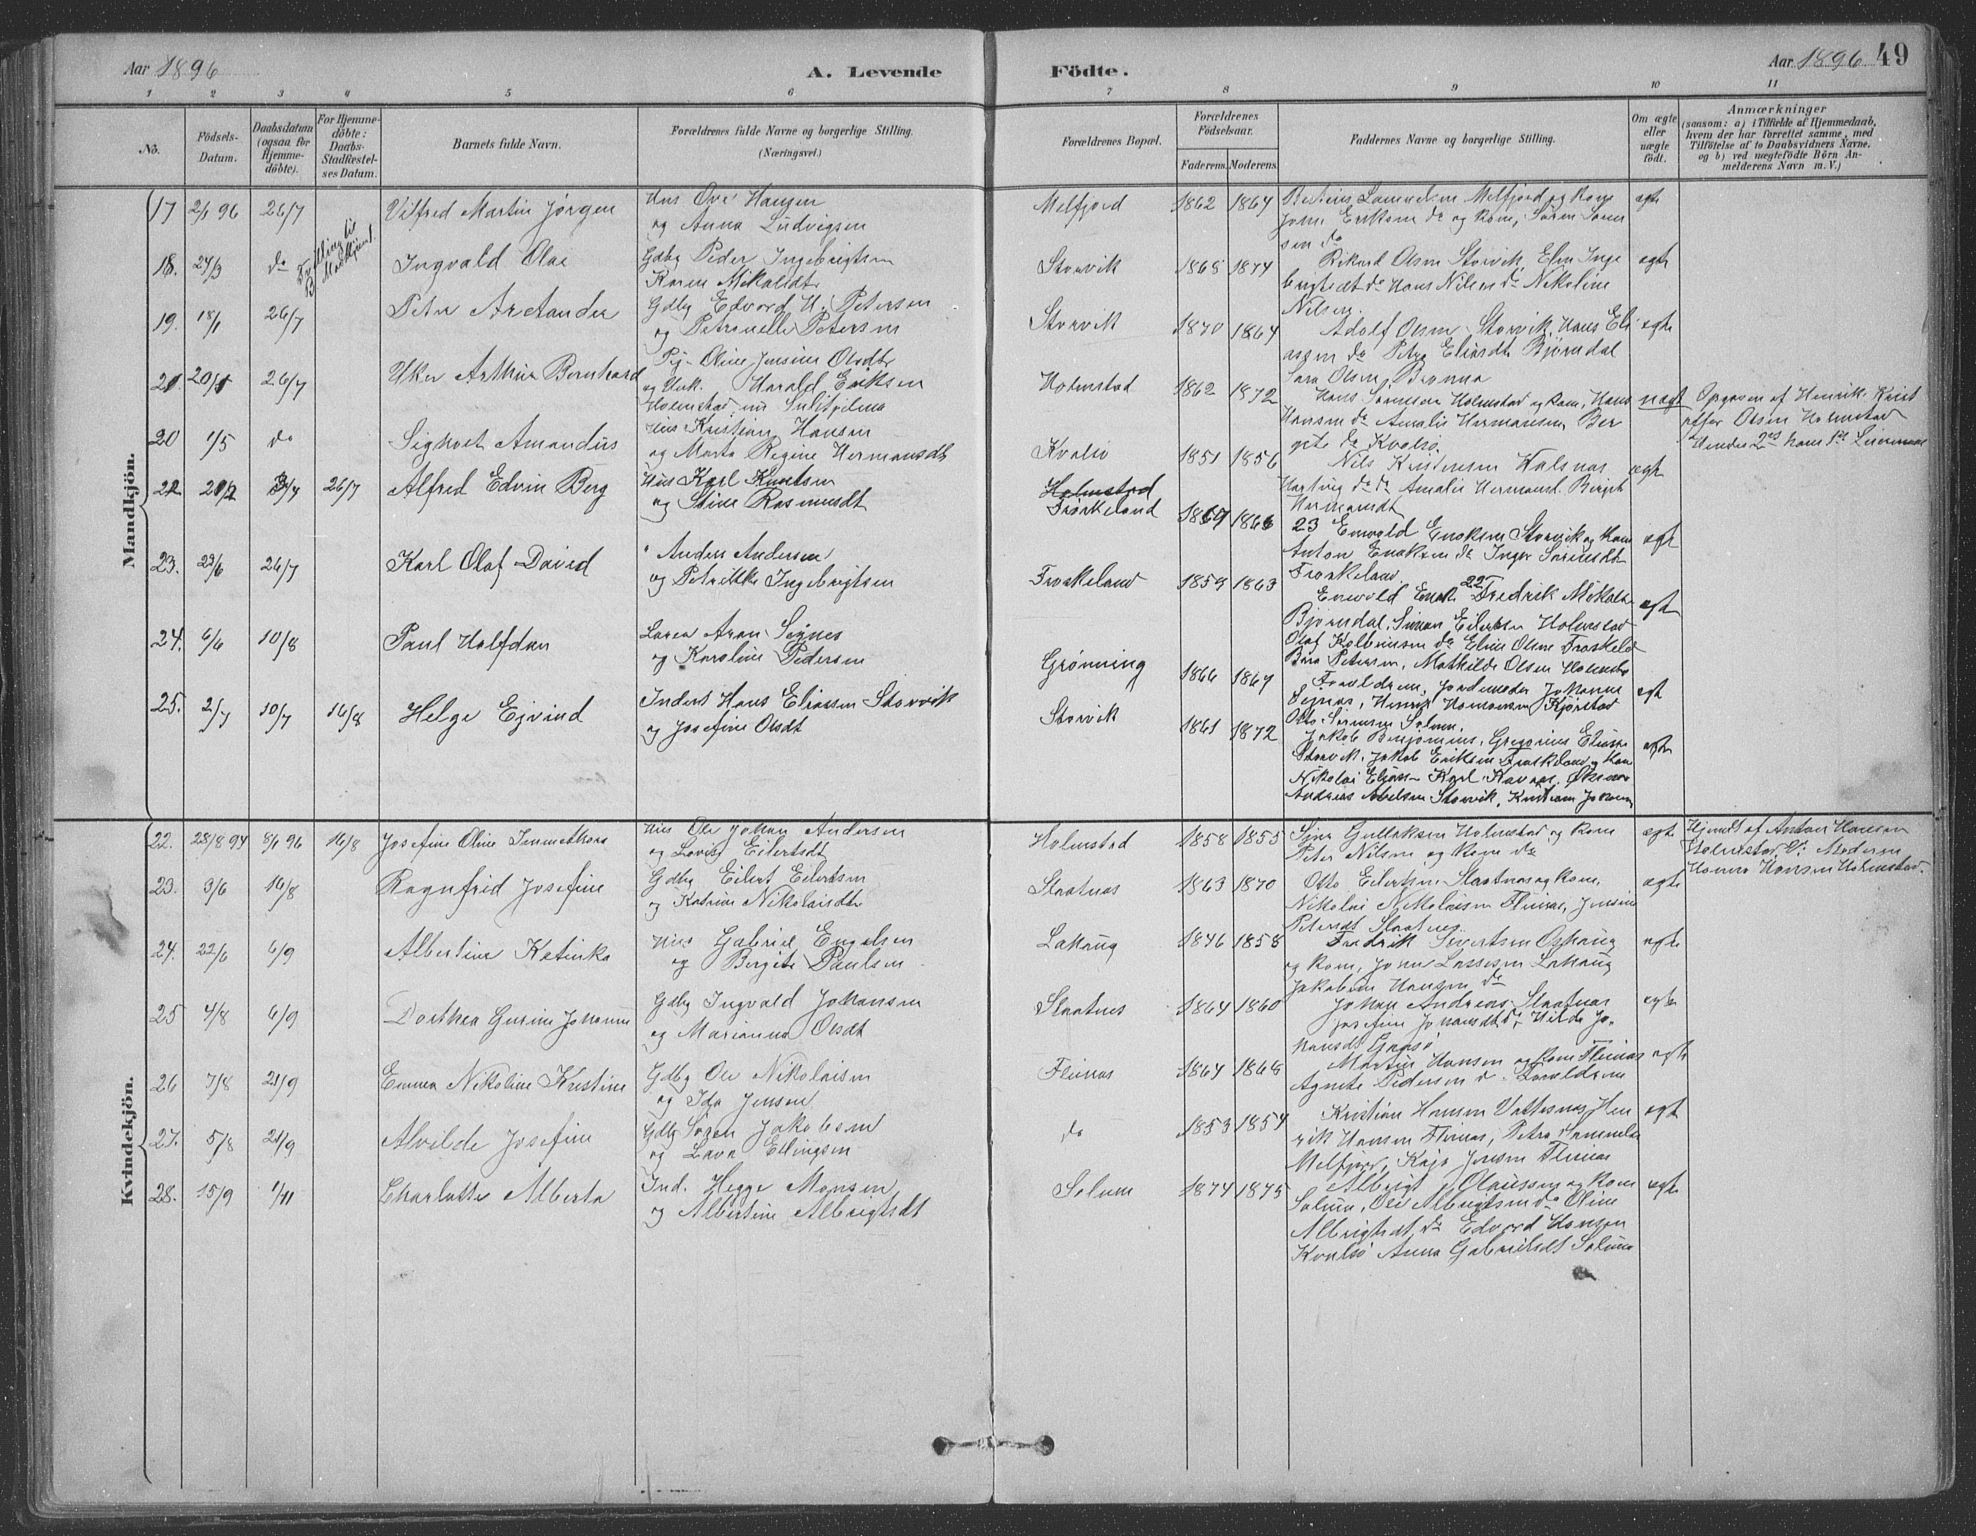 Aar 1896
A. Levende
Födte.
Aar 1896 49
1 2 3 4 5 6 7 8 9 10 11
No.
Födsels-
Datum.
Daabsdatum
(ogsaa for
Hjemme-
döbte).
For Hjemme-
döbte:
Daabs-
Stadfæstel-
ses Datum.
Barnets fulde Navn.
Forældrenes fulde Navne og borgerlige Stilling.
(Næringsvei.)
Forældrenes Bopæl.
Forældrenes
Födselsaar.
Faderens. Moderens.
Faddernes Navne og borgerlige Stilling.
Om ægte
eller
uægte
födt.
Anmærkninger
(saasom: a) i Tilfælde af Hjemmedaab,
hvem der har forrettet samme, med
Tilföielse af to Daabsvidners Navne.
og b) ved uægtefödte Börn An-
melderens Navn m. V.)
Mandkjön.
17 2/1 96 26/7 Vilfred Martin Jörgen
Hus Ove Hansen
og Anna Ludvigsen
Melfjord 1862 1864
Melfjord og Kone
Eriksen do og Kone, Sören Sören
sen do
ægte
18. 24/3 do Tvilling til
Ingvald Olai
Gdbg Peder Ingebrigtsen
Karen Mikalsdt
Storvik 1868 1874
Rikard Olsen Storvik, Elen Inge
brigtsdt do Hans Nilsen do Nikoline
Nilsen.
ægte
19. 18/1 26/7 Peter Arctander
Gdbg Edvard H. Petersen
og Petronelle Petersen
Storvik 1870 1864
Adolf Olsen Storvik, Hans Eli
assen do Petra Eliasdt Björndal
Sara Olsen, Brønna
ægte
26/7 Arthur Bernhard
Pig. Oline Jensine Olsdt
og Unk. Harald Eriksen
Holmstad, nu Sulitjelma
Holmstad 1862 1872
Hans Sörensen Holmstad og Kone, Hans
Hansen do Amalie Hermansen, Ber
gite do Kvalsö.
uægt
Opgiven af Henrik Krist
offer Olsen Holmstad
Hendes 2det hans 1ste Leiermaal
20 1/5 do Sighvat Amandus
Hus Kristian Hansen
og Marta Regine Hermansdt
Kvalsö 1851 1856
Nils Kristensen
Hartvig do do Amalie Hermansd. Birgit
Hermansdt
ægte
22. 3/4 26/7 Alfred Edvin Berg
Hus Karl Knutsen
og Stine Rasmusdt
Holmstad
Froskeland 1869 1866
23 Envald Enoksen Storvik og Kone
Anton Enoksen do Inger Sörensdt
Froskeland
ægt
23. 22/6 26/7 Karl Olaf David
" Anders Andersen
og Petrikke Ingebrigtsen
Froskeland 1859 1863
22 Fredrik Mikals
Björndal, Simon Eilertsen Holmstad
Olaf Kolbeinsen do Eline Olsen Froskeld
ægt
24. 6/6 10/8 Paul Halfdan
Lærer Aron Signes
og Karoline Pedersen
Grønning 1866 1864
Petersen, Mathilde Olsen Holmstad
Forældrene, Jordemoder Johanne
Signes, Henrik Hansen Kjørstad
Otto Sörensen Selnes.
ægt
25. 2/7 10/7 16/8 Helge Ejvind
Inderst Hans Eliassen Storvik
og Josefine Olsdt
Storvik 1861 1872
Jakob Benjamins, Gregorius Elias
Storvik, Jakob Eriksen Froskeland og Kone
Nikolai Eliasen Karl Øksnes
Andreas Abelsen Storvik, Kristian Johans
ægte
Kvindekjön.
22. 28/8 94 8/1 96 16/8 Josefine Oline
Hus Ole Johan Andersen
og Lovise Eilertsdt
Holmstad 1858 1855
Gullaksen Holmstad og Kone
Peter Nilsen og Kone do
ægte
Hjemdt af Anton Hansen
Holmstad V: Moderen
Hanna Hansen Holmstad
23. 3/6 16/8 Ragnfrid Josefine
Gdbg Eilert Eilertsen
og Katrine Nikolaisdt
Slaatnes 1863 1870
Otto Eilertsen Slaatnes og Kone,
Nikolai Nikolaisen Flines, Jensine
Petersdt Slaatnes
ægte
24. 22/6 6/9 Albertine Katinka
Hus Gabriel Engelsen
og Bergite Paulsen
Lahaug 1846 1858
Fredrik Sivertsen Oshaug
og Kone, Lassesen Lahaug
Jakobine Hansen do
ægte
25 4/8 6/9 Dorthea Gurine Johanne
Gdbg Ingvald Johansen
og Marianna Olsdt
Slaatnes 1864 1860
Johan Andreas Slaatnes
Josefine Johansdt do, Hilda Jo-
hansdt Gaasö
ægte
26 7/8 21/9 Emma Nikoline Kristine
Gdbg Ole Nikolaisen
og Ida Jensen
Flines 1864 1868
Martin Hansen og Kone Flines
Agnete Pedersen do Forældrene
ægte
27. 5/8 21/9 Alvilde Josefine
Gdbg Sören Jakobsen
og Lava Ellingsen
do 1853 1854
Kristian Hansen Vottesnes Hen
rik Hansen Flines, Petra Sammels
Melfjord, Kaja Jensen Flines
ægt
28. 15/9 1/11 Charlotte Alberta
Ind. Hegge Monsen
og Albertine Albrigtsdt
Selnes 1874 1875
Albrigt Olaussen og Kone
Selnes, Ole Albrigtsen do Oline
Albrigtsdt do Edvard Hansen
Kvalsö Anna Gabrielsdt Selnes
ægte